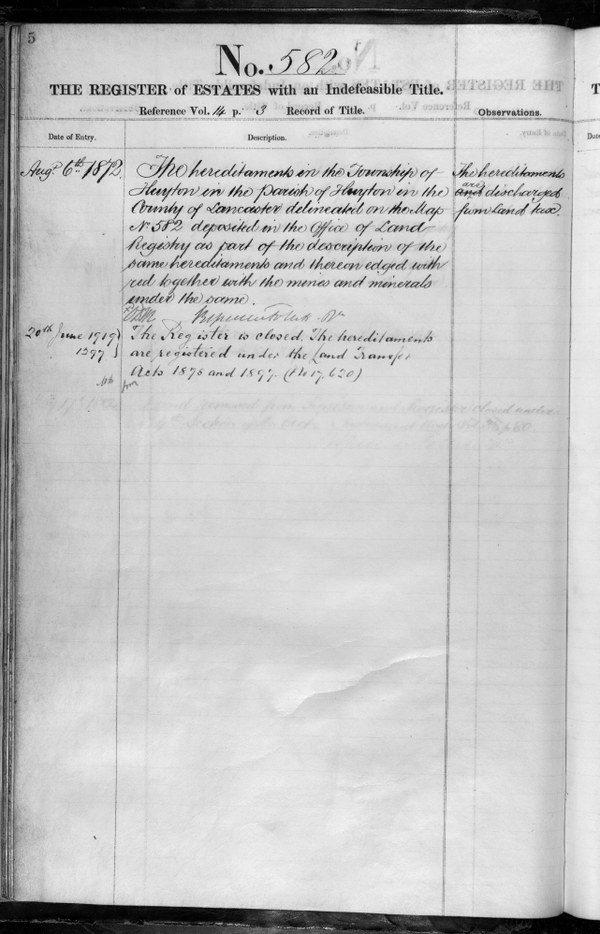 5
No. 582
THE REGISTER of ESTATES with an Indefeasible Title.
Reference Vol. 14 p. 3 Record of Title.
Observations.
Date of Entry.
Description.
Augt 6th 1872.
The hereditaments in the Township of
Huyton in the Parish of Huyton in the
County of Lancaster delineated on the Map
No 582 deposited in the Office of Land
Registry as part of the description of the
same hereditaments and thereon edged with
red together with the mines and minerals
under the same.
The hereditaments
are discharged
from Land Tax.
20th June 1919
1297
The Register is closed. The hereditaments
are registered under the Land Transfer
Acts 1875 and 1897. (No 17,620)